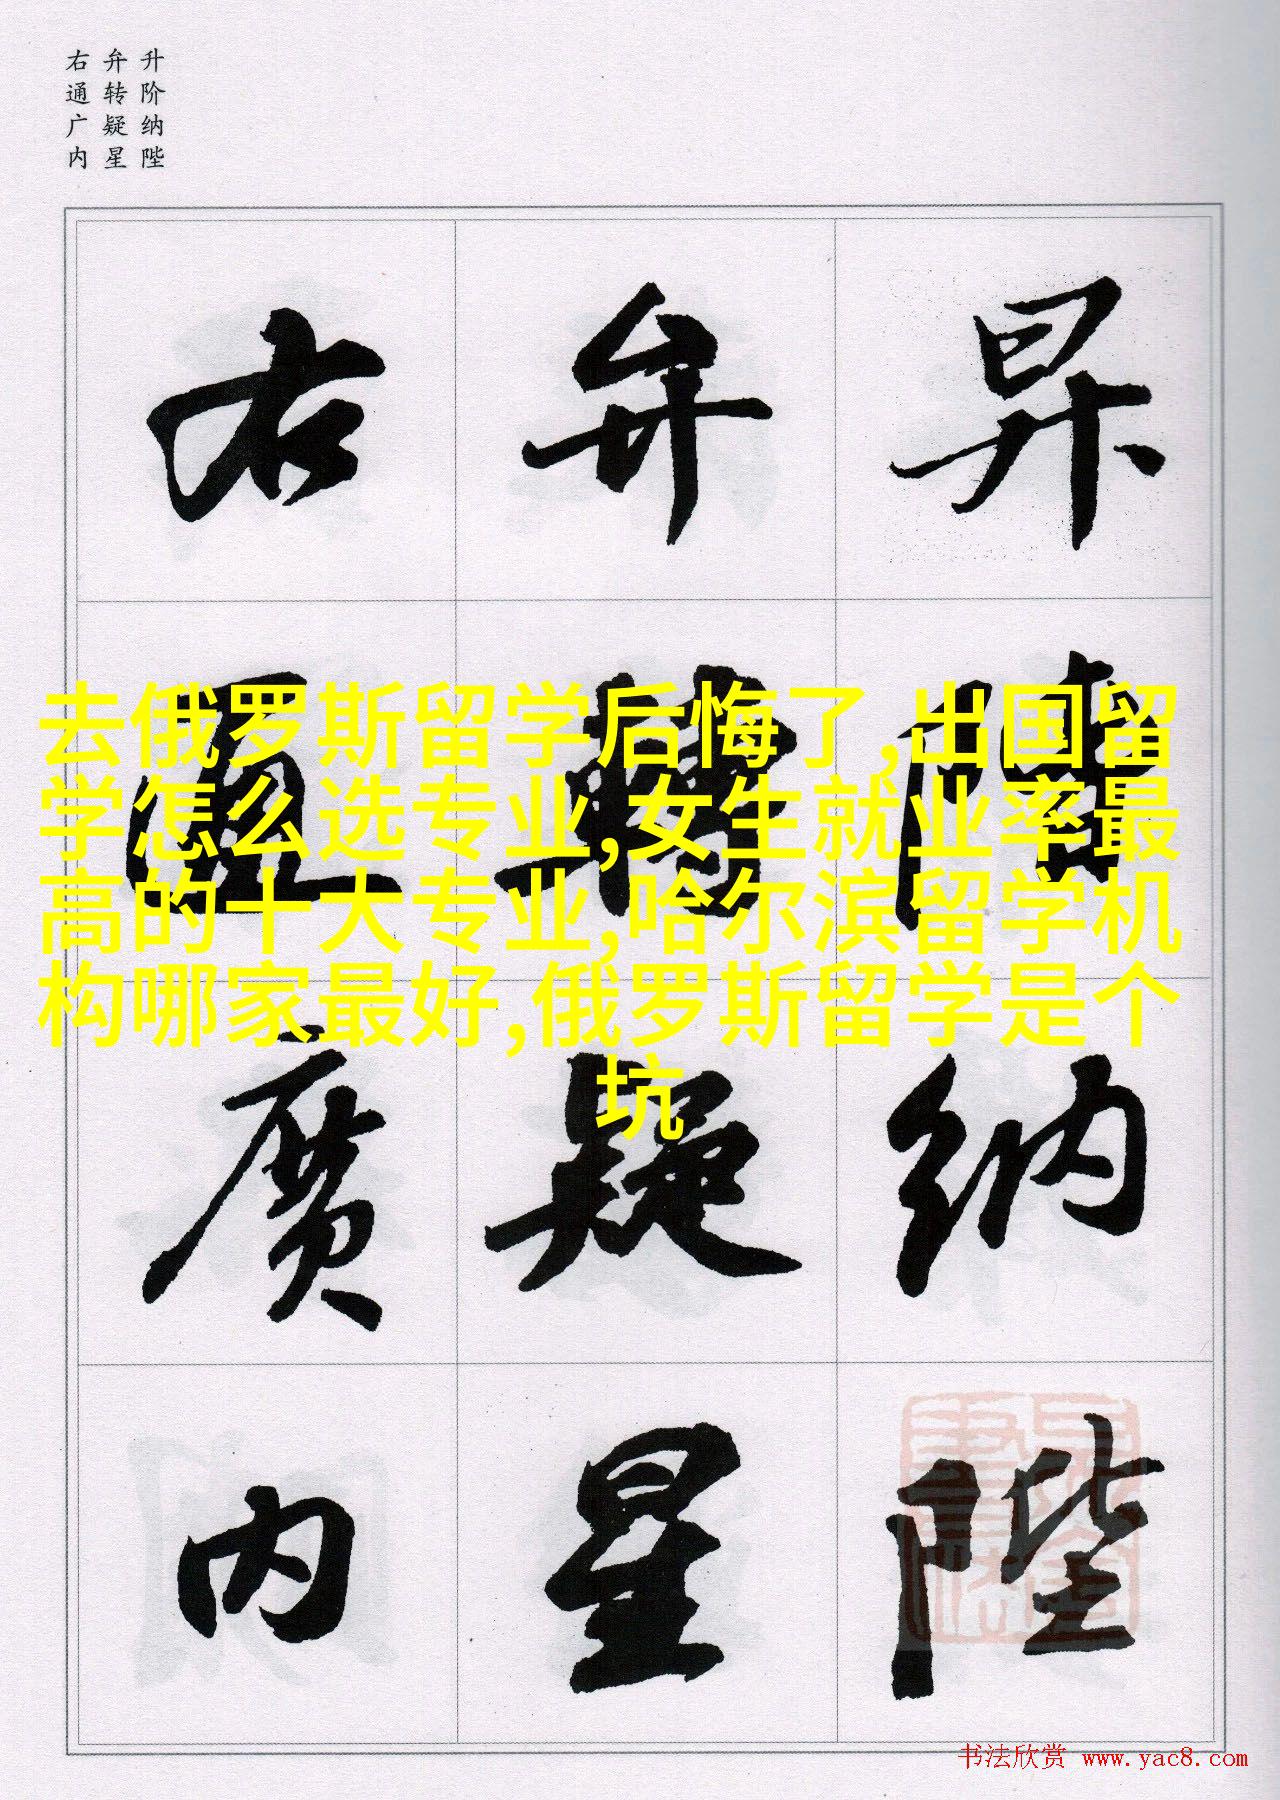 升阶纳陛
弁转疑星
右通广内
昇階納陛
弁轉疑星
右通廣內
去俄罗斯留学后悔了,出国留
学怎么选专业,女生就业率最
高的十大专业,哈尔滨留学机
构哪家最好,俄罗斯留学是个
坑
书法欣赏 www.yac8.com